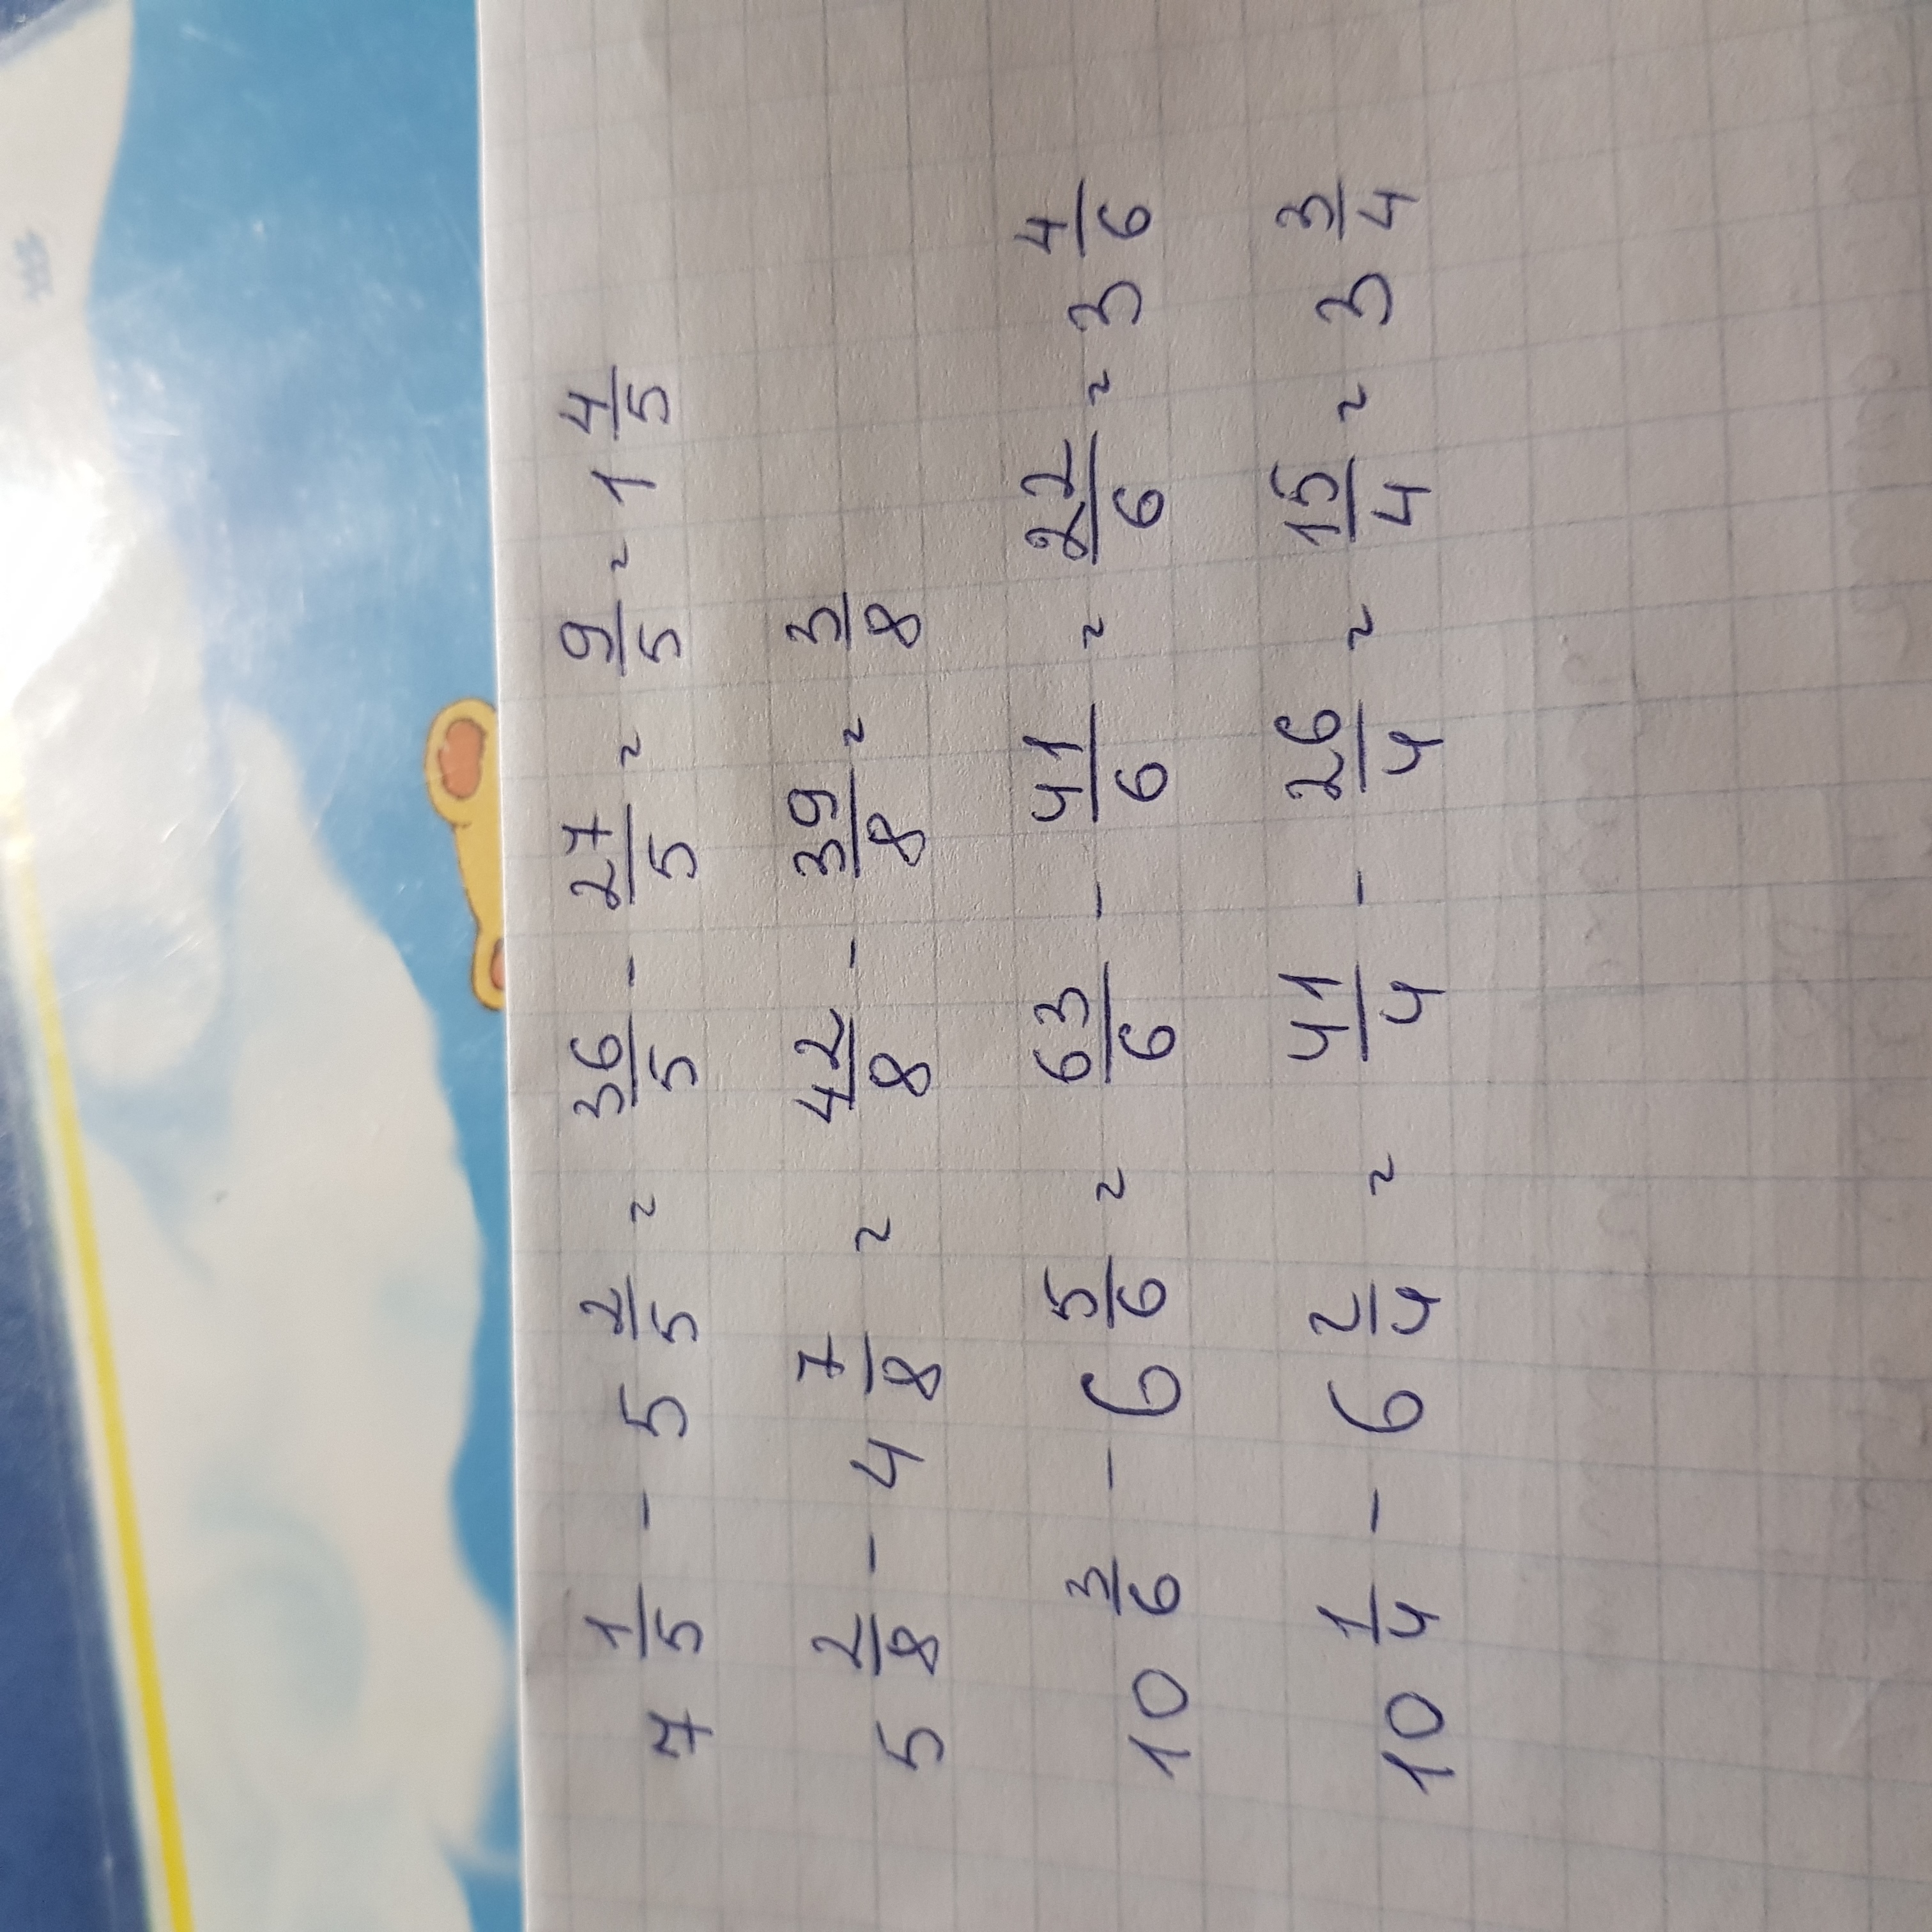 7 1/5 - 5 2/5 = 36/5 - 27/5 = 9/5 = 1 4/5
5 2/8 - 4 7/8 = 42/8 - 39/8 = 3/8
10 3/6 - 6 5/6 = 63/6 - 41/6 = 22/6 = 3 4/6
10 1/4 - 6 2/4 = 41/4 - 26/4 = 15/4 = 3 3/4